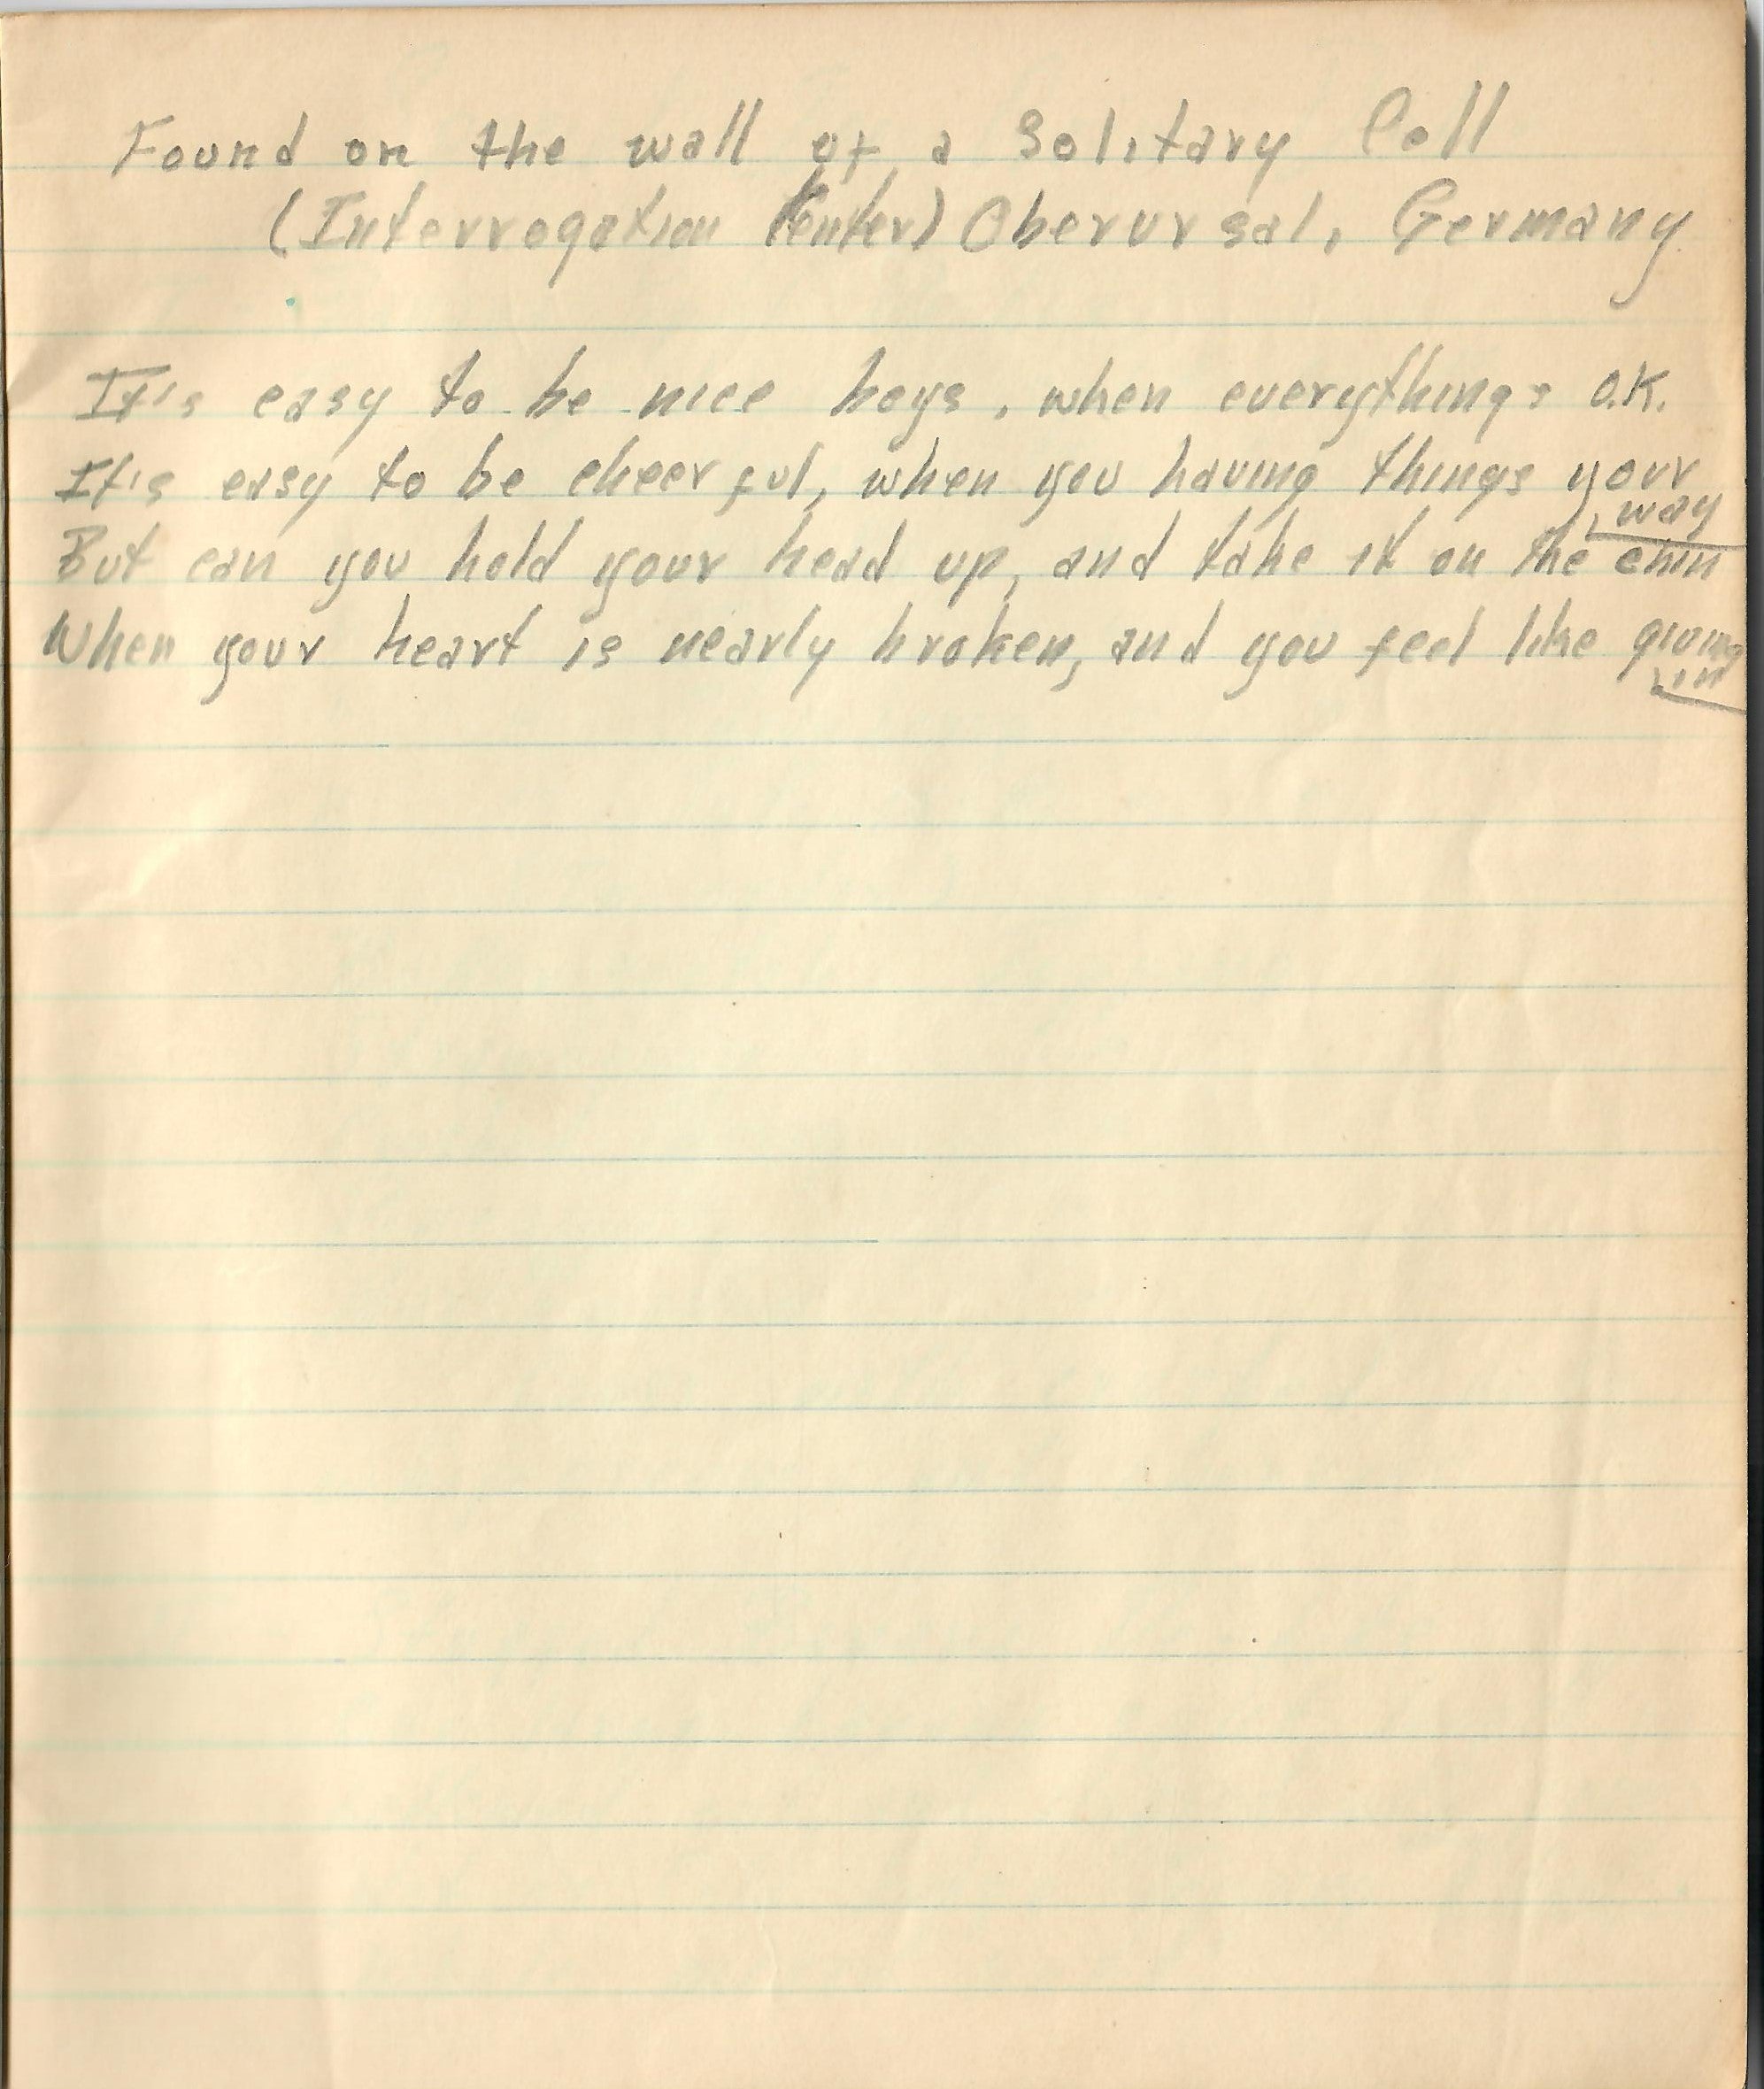 Found on the wall of a Solitary Cell
(Interrogation Center) Oberursal, Germany
It's easy to be nice boys, when everythings O.K.
It's easy to be cheerful, when you having things your
way
But can you hold your head up, and take it on the chin
When your heart is nearly broken, and you feel like giving
in